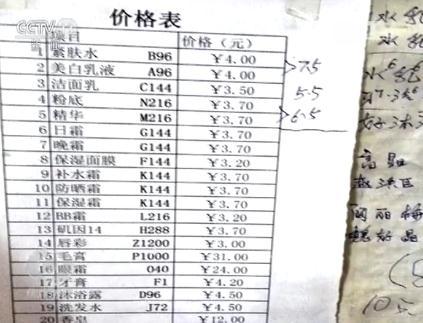 CCTV
价格表
项目 价格（元）
1 紧肤水 B96 ￥4.00
2 美白乳液 A96 ￥4.00
3 洁面乳 C144 ￥3.50
4 粉底 N216 ￥3.70
5 精华 M216 ￥3.70
6 日霜 G144 ￥3.70
7 晚霜 G144 ￥3.70
8 保湿面膜 F144 ￥3.20
9 补水霜 K144 ￥3.70
10 防晒霜 K144 ￥3.70
11 保湿霜 K144 ￥3.70
12 BB霜 L216 ￥3.20
13 矶因14 H288 ￥3.70
14 唇彩 Z1200 ￥3.00
15 毛膏 P1000 ￥31.00
16 眼霜 O40 ￥24.00
17 牙膏 F1 ￥4.20
18 沐浴露 D96 ￥4.50
19 洗发水 J72 ￥4.50
20 香皂 ￥12.00
7.5
5.5
6.5
水
水